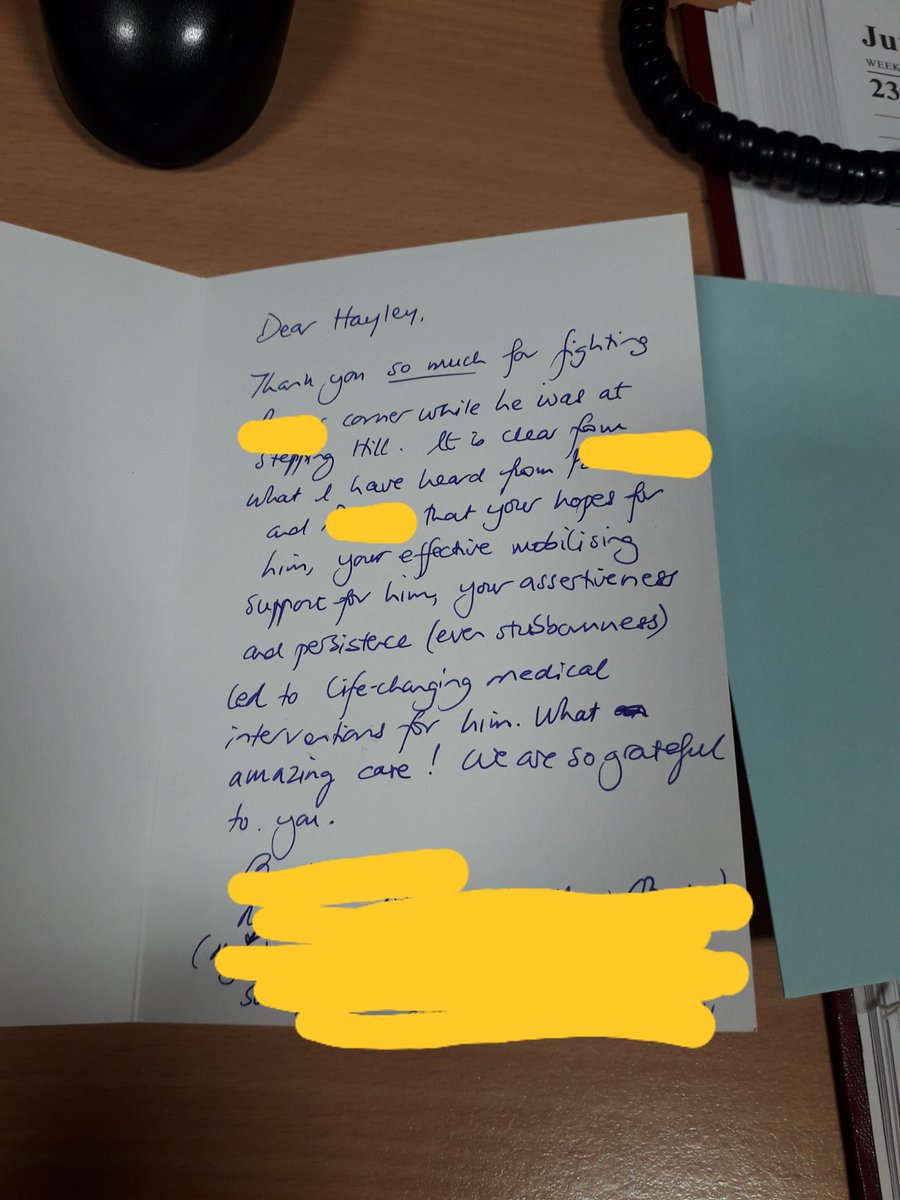 Dear Hayley,
Thank you so much for fighting
corner while he was at
Stepping Hill. It is clear from
what I have heard from
and that your hopes for
him, your effective mobilising
support for him, your assertiveness
and persistence (even stubbornness)
led to life-changing medical
interventions for him. What
amazing care! We are so grateful
to you.
Ju
WEEK
23